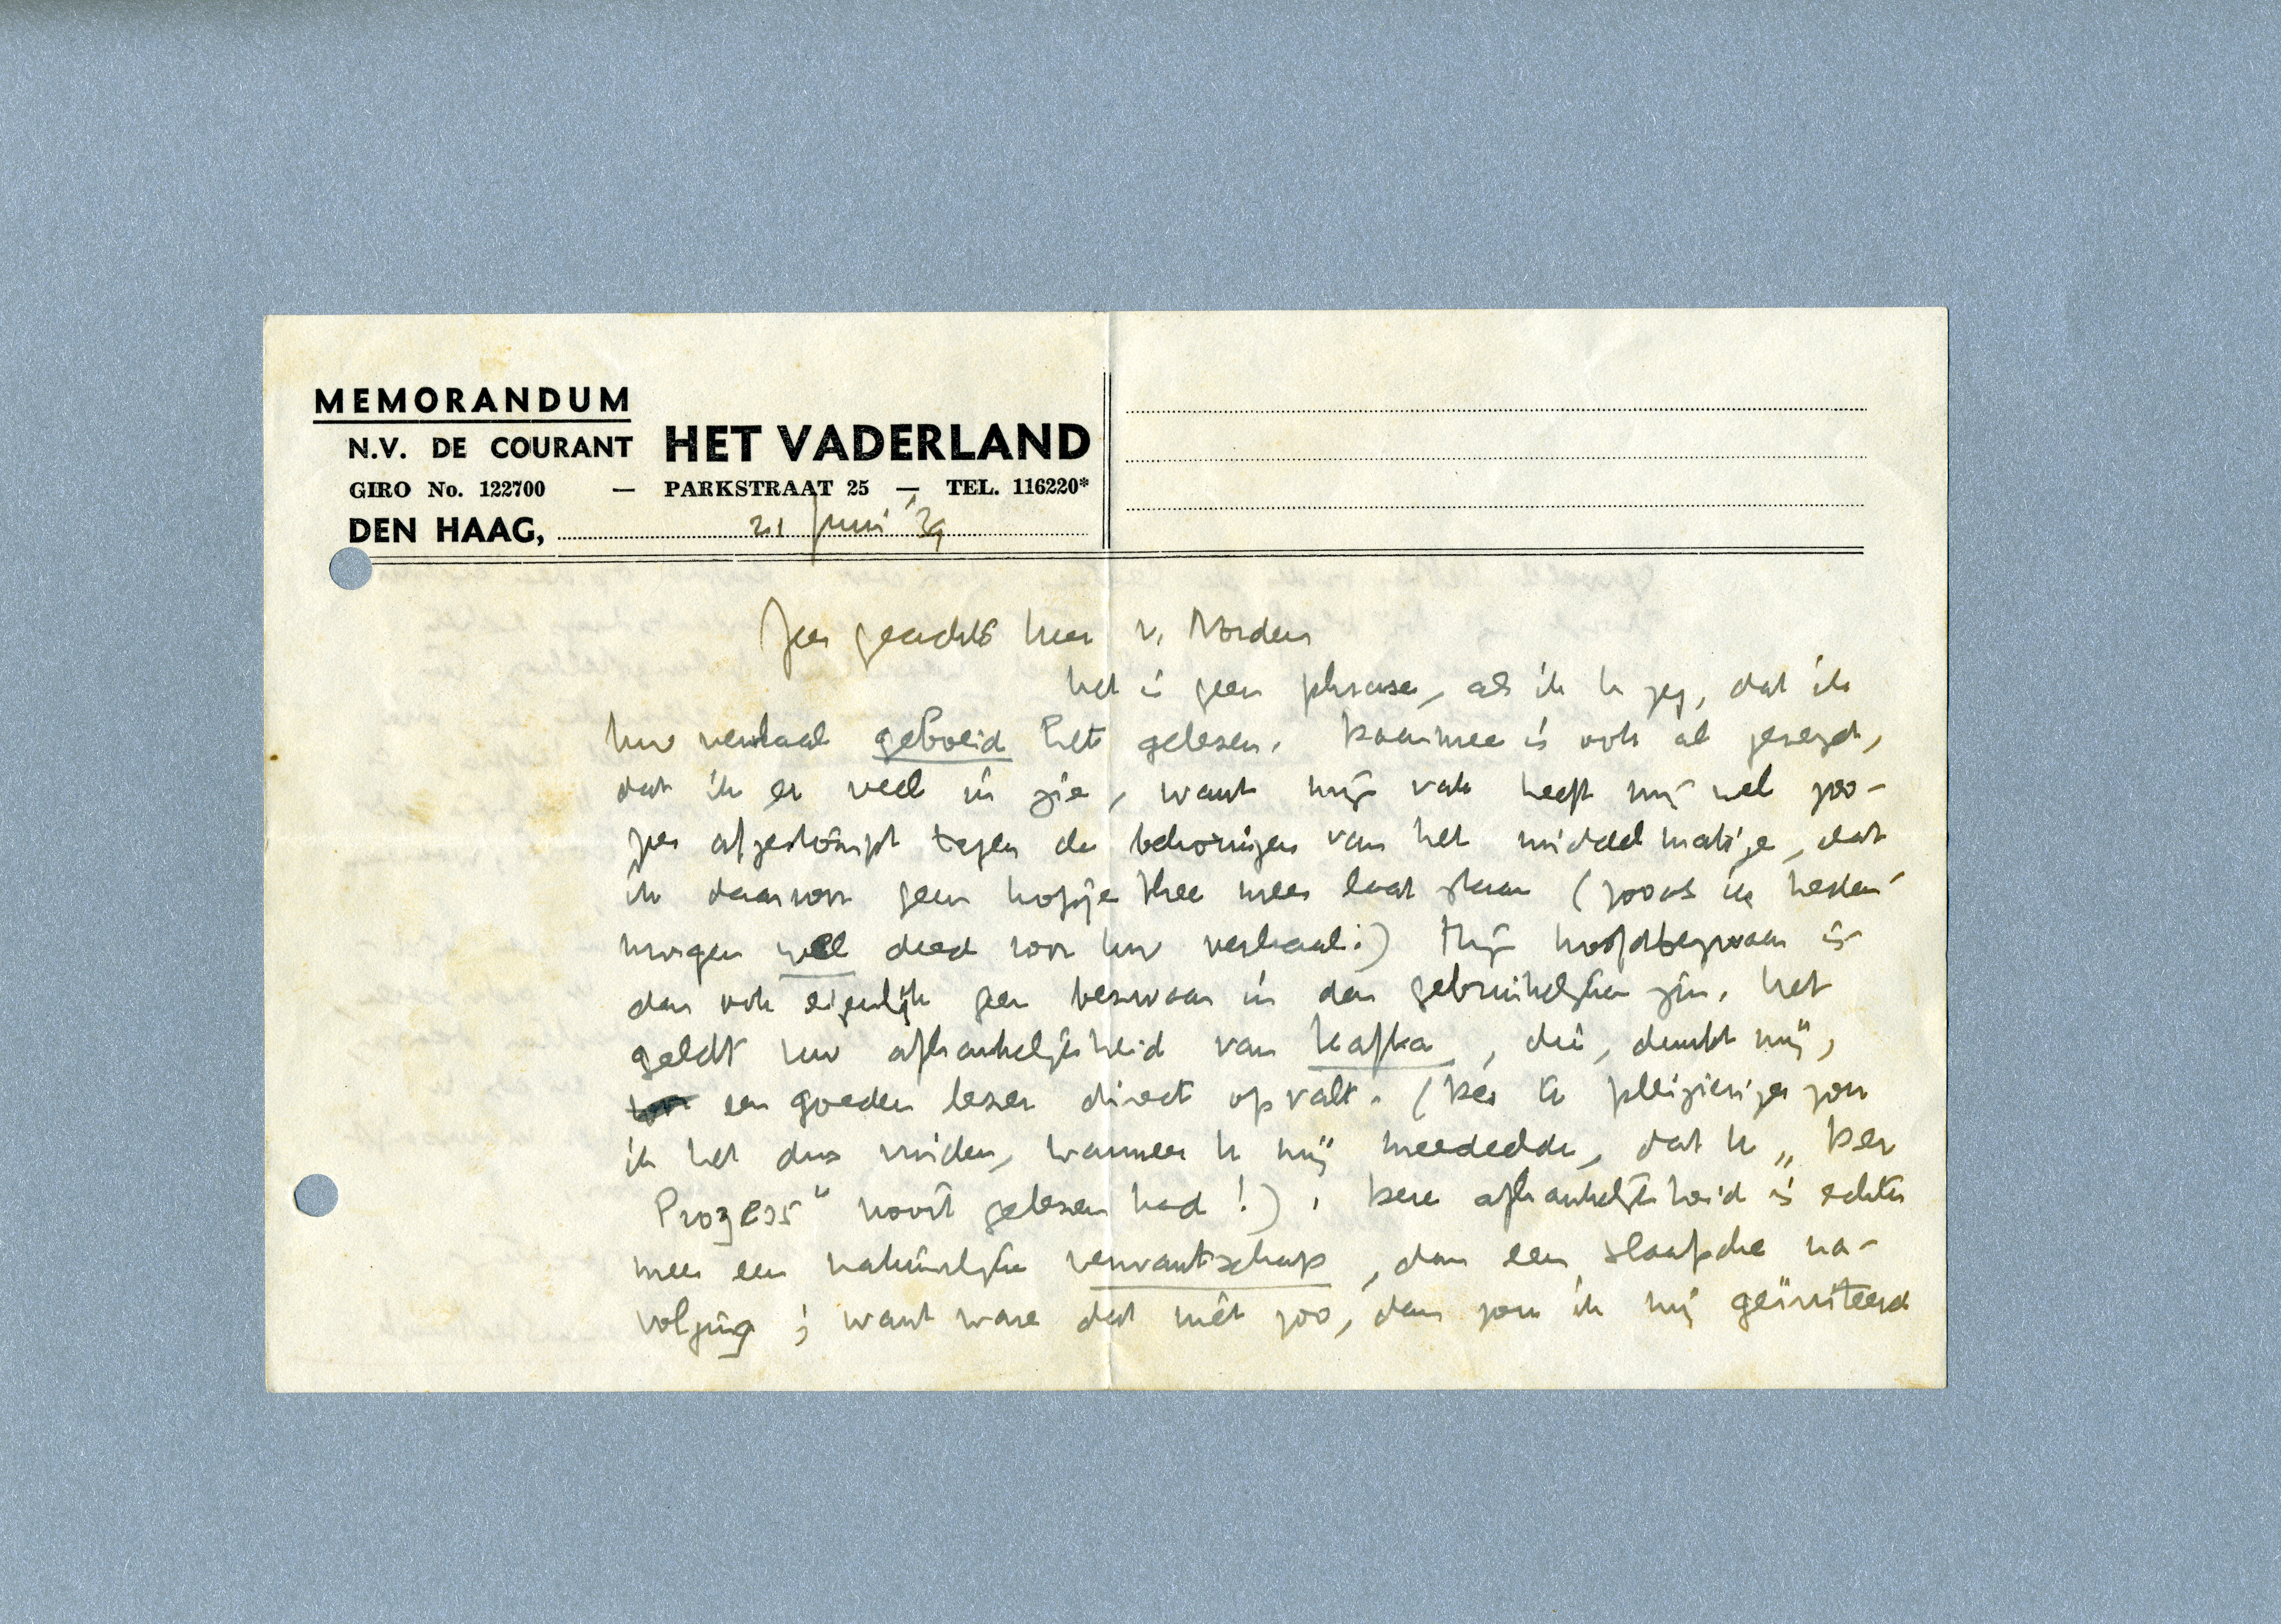 MEMORANDUM
N.V. DE COURANT HET VADERLAND
GIRO No. 122700 — PARKSTRAAT 25 — TEL. 116220*
DEN HAAG, 21 Juni '39
Zeer geachte heer v. Norden
het is geen phrase, als ik U zeg, dat ik
Uw verhaal geboeid heb gelesen. Daarmee is ook al gezegd,
dat ik er veel in zie, want mijn vak heeft mij wel zoo-
zeer afgestompt tegen de bekoringen van het middelmatige, dat
ik daarvoor geen kopje thee meer laat staan (zooals ik heden-
morgen wel deed voor Uw verhaal!) Mijn hoofdbezwaar is
dan ook eigenlijk geen bezwaar in den gebruikelijken zin. Het
geldt Uw afhankelijkheid van Kafka, die, dunkt mij,
een goeden lezer direct opvalt. (Des te pleizieriger zou
ik het dus vinden, wanneer U mij meedeelde, dat U „Der
Prozess" nooit gelezen had!). Deze afhankelijkheid is echter
meer een natuurlijke verwantschap, dan een slaafsche na-
volging; want ware dat niet zoo, dan zou ik mij geïrriteerd